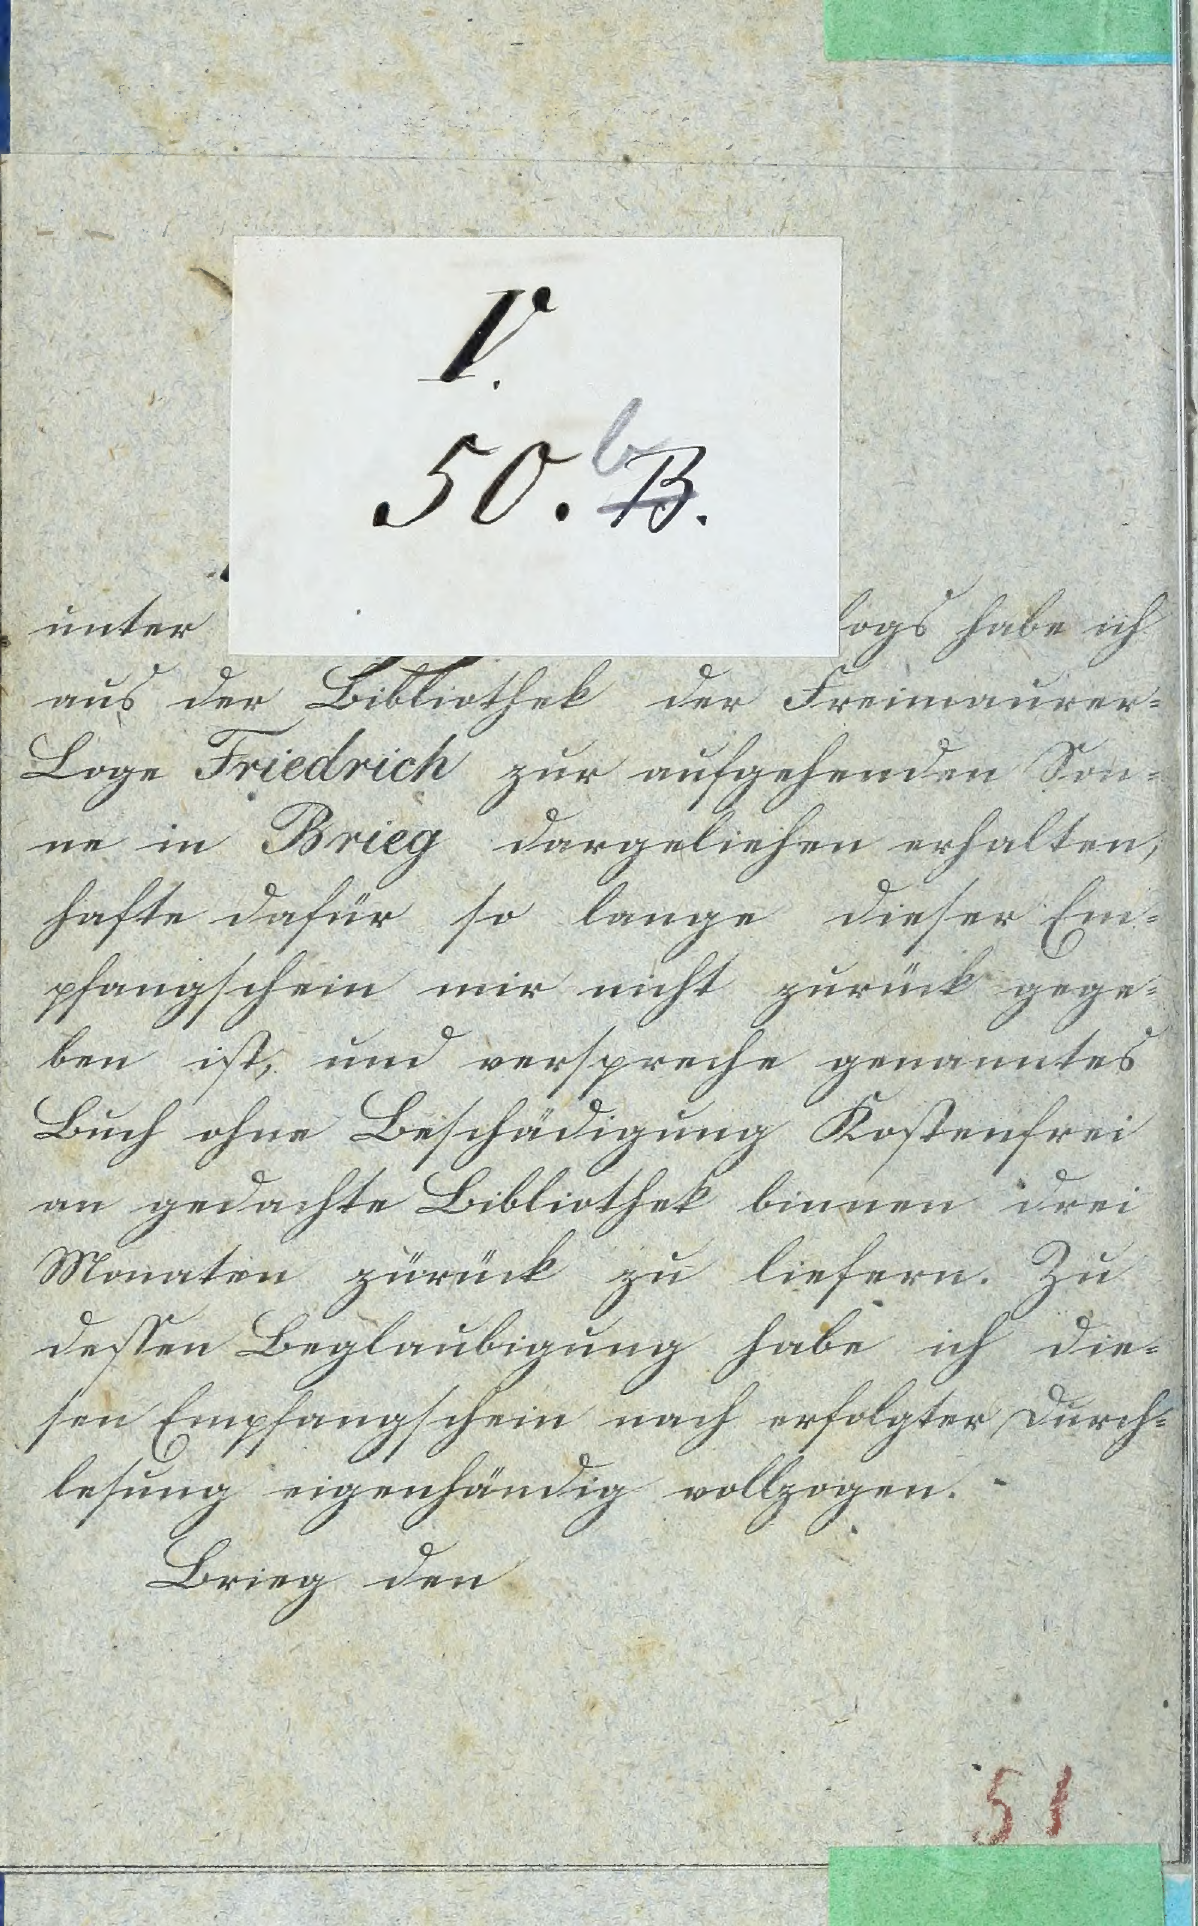 V.
50. b B.
unter logs habe ich
aus der Bibliothek der Freimaurer-
Loge Friedrich zur aufgehenden Son-
ne in Brieg dargeliehen erhalten,
hafte dafür so lange dieser Em-
pfangschein mir nicht zurück gege-
ben ist, und verspreche genanntes
Buch ohne Beschädigung Kostenfrei
an gedachte Bibliothek binnen drei
Monaten zürück zu liefern. Zu
dessen Beglaubigung habe ich die-
sen Empfangschein nach erfolgter Durch-
lesung eigenhändig vollzogen.
Brieg den
51